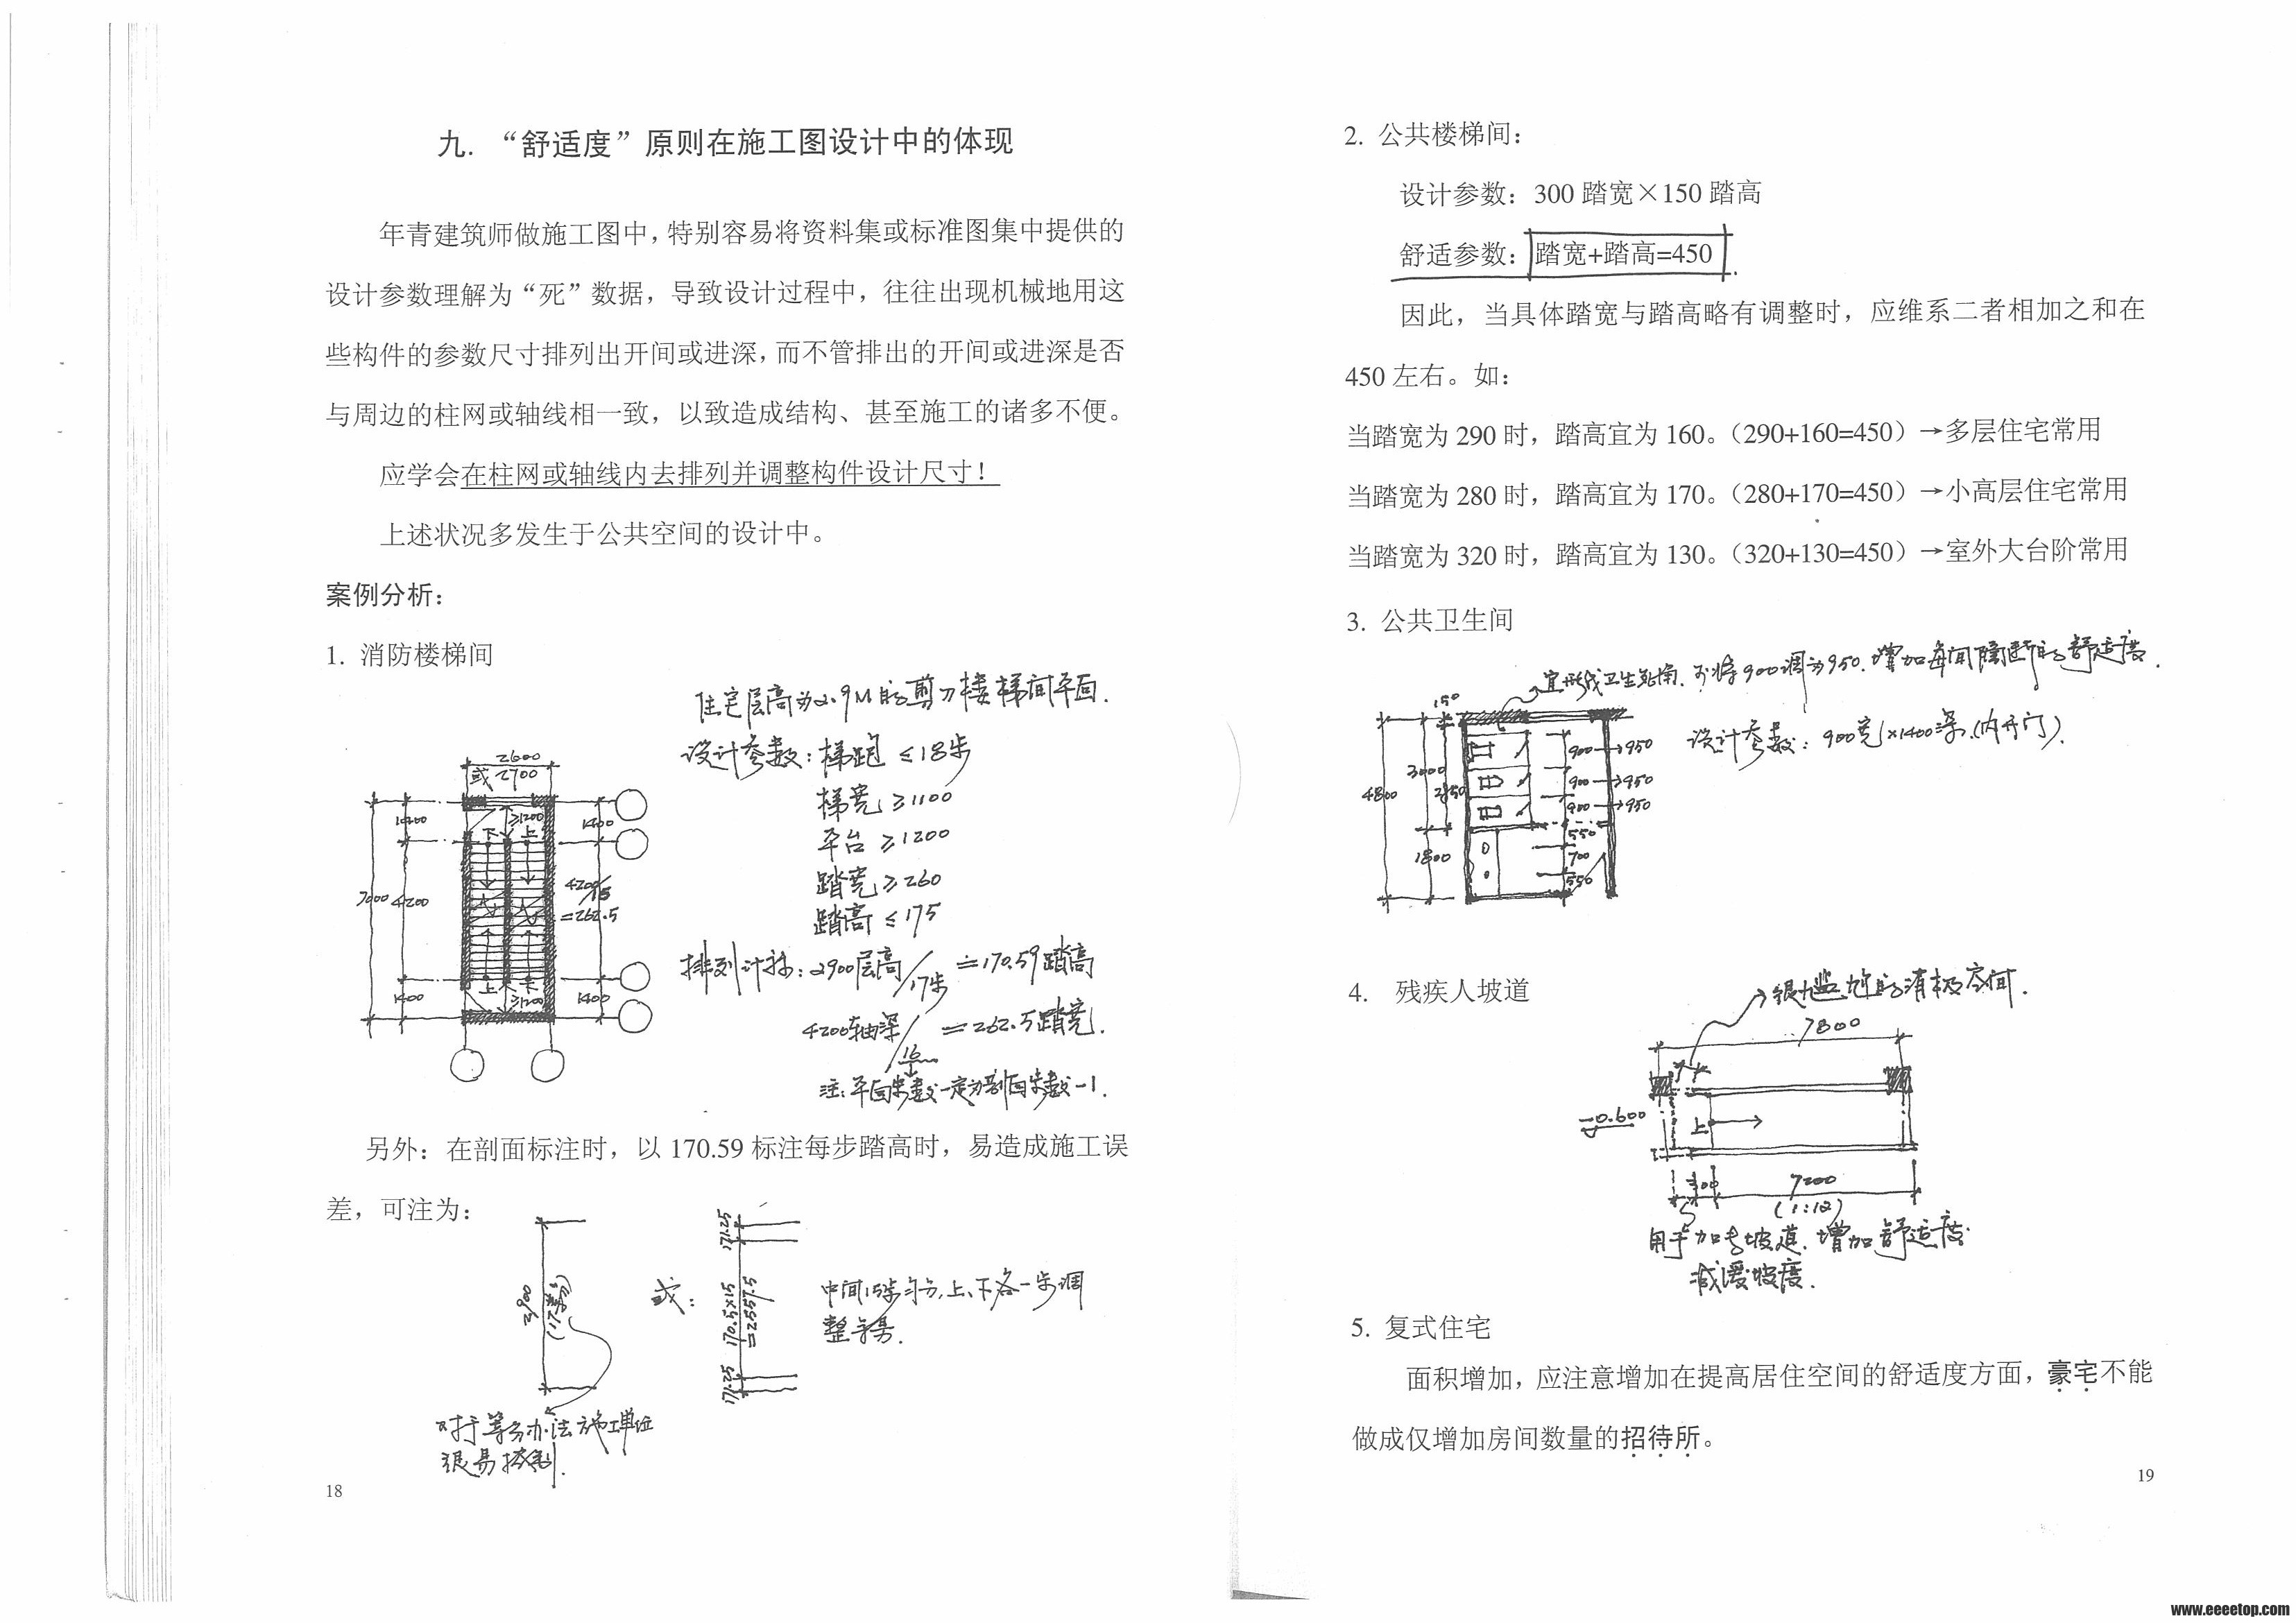 九. “舒适度”原则在施工图设计中的体现
年青建筑师做施工图中，特别容易将资料集或标准图集中提供的
设计参数理解为“死”数据，导致设计过程中，往往出现机械地用这
些构件的参数尺寸排列出开间或进深，而不管排出的开间或进深是否
与周边的柱网或轴线相一致，以致造成结构、甚至施工的诸多不便。
应学会在柱网或轴线内去排列并调整构件设计尺寸！
上述状况多发生于公共空间的设计中。
案例分析：
1. 消防楼梯间
住宅层高为2.9M的剪刀楼梯间平面.
设计参数：梯跑 ≤18步
梯宽 ≥1100
平台 ≥1200
踏宽 ≥260
踏高 ≤175
排列计标：2900层高/17步 ≐170.59踏高
4200轴深/16 =262.5踏宽.
注：平面步数一定为剖面步数-1.
2600
或2700
≥1200
下 上
1400
1400
7000
4200
4200/
=262.5
上 下
≥1200
1400
1400
另外：在剖面标注时，以 170.59 标注每步踏高时，易造成施工误
差，可注为：
2,900
(17等分)
或：
171.25
170.5×15
=2557.5
171.25
中间15步均分,上、下各一步调
整手易.
对于等分办法施工单位
很易控制.
18
2. 公共楼梯间：
设计参数：300 踏宽×150 踏高
舒适参数：踏宽+踏高=450
因此，当具体踏宽与踏高略有调整时，应维系二者相加之和在
450 左右。如：
当踏宽为 290 时，踏高宜为 160。（290+160=450）→多层住宅常用
当踏宽为 280 时，踏高宜为 170。（280+170=450）→小高层住宅常用
当踏宽为 320 时，踏高宜为 130。（320+130=450）→室外大台阶常用
3. 公共卫生间
宜形成卫生死角.可将900调为950.增加每间隔断的舒适度.
设计参数：900宽×1400深.(内开门).
150
3000
4800
1800
900→950
900→950
900→950
550
700
550
4. 残疾人坡道
很尴尬的消极空间.
7800
-0.600
上
300
7200
(1:12)
用于加长坡道.增加舒适度
减缓坡度.
5. 复式住宅
面积增加，应注意增加在提高居住空间的舒适度方面，豪宅不能
做成仅增加房间数量的招待所。
19
www.eeeetop.com